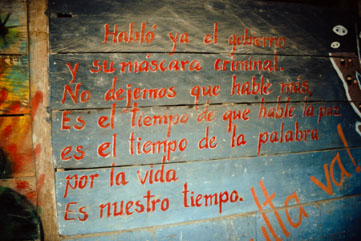 Habló ya el gobierno
y su máscara criminal.
No dejemos que hable más,
Es el tiempo de que hable la paz
es el tiempo de la palabra
por la vida
Es nuestro tiempo.
ulta va!